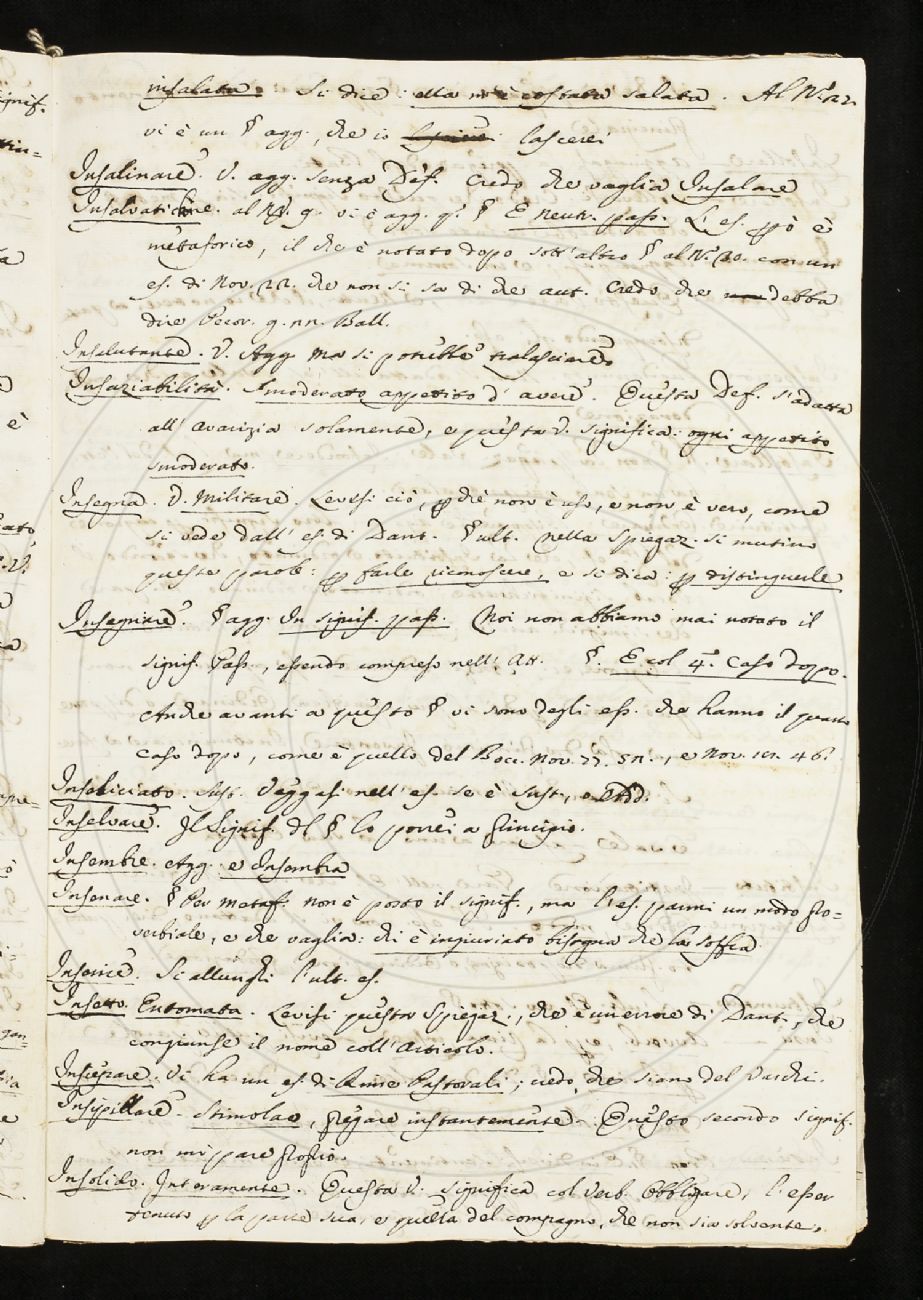 insalata. Si dice: ella m'è costata salata. Al N.° 22.
vi è un § agg., che io lascerei
Insalinare. V. agg. senza Def. Credo che vaglia Insalare
Insalvatichire. al N.° 9. vi è agg. q.° § E neutr. pass. L'es. però è
metaforico, il che è notato dopo sott'altro § al N.° 20. con un
es. di Nov. 22. che non si sa di che aut. Credo che debba
dire Pecor. g. 11. Ball.
Insalutante. V. Agg. ma si potrebbe tralasciare
Insaziabilità. Smoderato appetito d'avere. Questa Def. s'adatta
all'avarizia solamente, e questa V. significa: ogni appetito
smoderato.
Insegna. V. Militare. Levisi ciò, perchè non è uso, e non è vero, come
si vede dall'es. di Dant. § ult. Nella Spiegaz. si mutino
queste parole: per farle riconoscere, e si dica: per distinguerle
Insegnare. § agg. In signif. pass. Noi non abbiamo mai notato il
signif. Pass., essendo compreso nell'Att. §. E col 4.° Caso dopo.
Anche avanti a questo § vi sono degli ess. che hanno il quarto
caso dopo, come è quello del Bocc. Nov. 77. 51., e Nov. 101. 46.
Inseliciato. Sust. Veggasi nell'es. se è Sust., o Add.
Inselvare. Il Signif. del § lo porrei a principio.
Insembre. Agg. e Insembra
Insenare. § Per metaf. non è posto il signif., ma l'es. parmi un modo pro=
verbiale, e che vaglia: chi è ingiuriato bisogna che la soffra
Inserire. Si allunghi l'ult. es.
Insetto. Entomata. Levisi questa Spiegaz., che è un errore di Dant., che
congiunse il nome coll'Articolo.
Insiepare. Vi ha un es. di Rime Pastorali; credo che siano del Varchi.
Insipillare. Stimolare, pregare instantemente. Questo secondo signif.
non mi pare proprio.
Insolido. Interamente. Questa V. significa col verb. Obbligare, l'esser
tenuto per la parte sua, e quella del compagno, che non sia solvente.